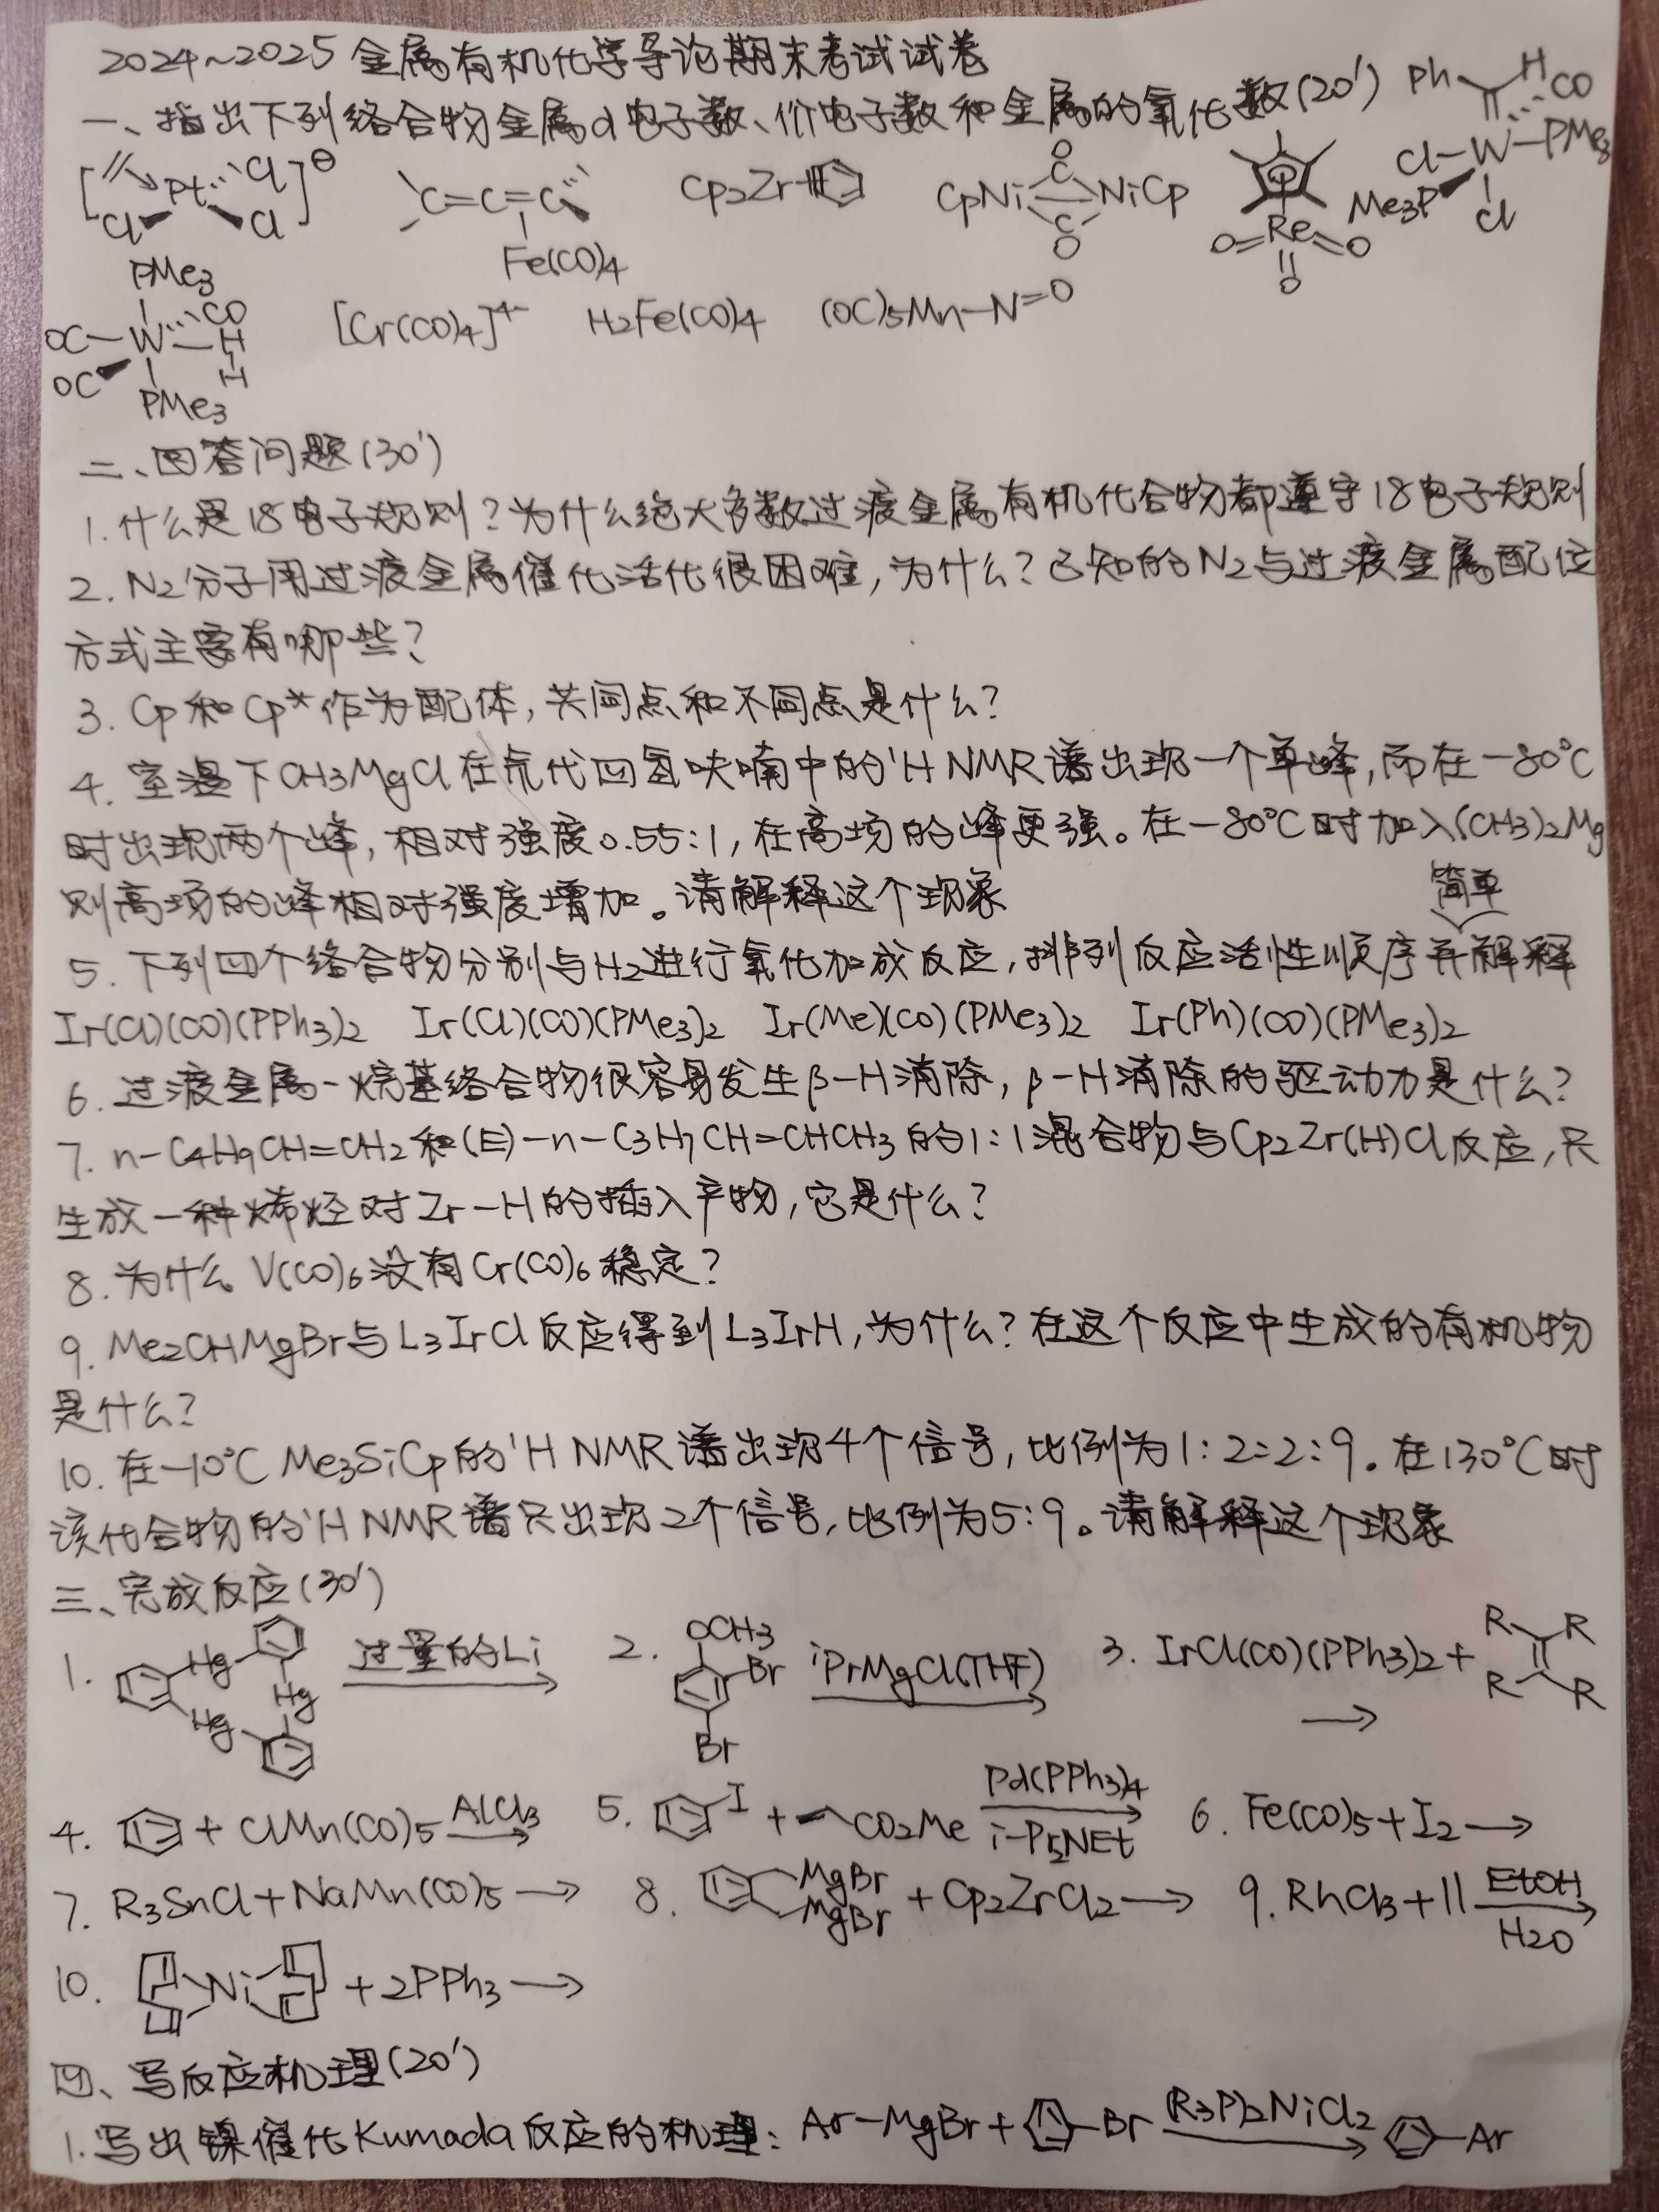 2024~2025 金属有机化学导论期末考试试卷
一、指出下列络合物金属d电子数、价电子数和金属的氧化数(20')
Ph H CO Cl-W-PMe3 Me3P Cl
[Pt Cl Cl Cl]⊖
C=C=C Fe(CO)4
Cp2Zr
CpNi C O C O NiCp
O=Re=O O
PMe3 OC-W CO H H OC PMe3
[Cr(CO)4]4-
H2Fe(CO)4
(OC)5Mn-N=O
二、回答问题(30')
1. 什么是18电子规则?为什么绝大多数过渡金属有机化合物都遵守18电子规则
2. N2分子用过渡金属催化活化很困难,为什么?已知的N2与过渡金属配位
方式主要有哪些?
3. Cp和Cp*作为配体,共同点和不同点是什么?
4. 室温下CH3MgCl在氘代四氢呋喃中的'H NMR谱出现一个单峰,而在-80°C
时出现两个峰,相对强度0.55:1,在高场的峰更强。在-80°C时加入(CH3)2Mg
则高场的峰相对强度增加。请解释这个现象
5. 下列四个络合物分别与H2进行氧化加成反应,排列反应活性顺序并简单解释
Ir(Cl)(CO)(PPh3)2 Ir(Cl)(CO)(PMe3)2 Ir(Me)(CO)(PMe3)2 Ir(Ph)(CO)(PMe3)2
6. 过渡金属-烷基络合物很容易发生β-H消除,β-H消除的驱动力是什么?
7. n-C4H9CH=CH2和(E)-n-C3H7CH=CHCH3的1:1混合物与Cp2Zr(H)Cl反应,只
生成一种烯烃对Zr-H的插入产物,它是什么?
8. 为什么V(CO)6没有Cr(CO)6稳定?
9. Me2CHMgBr与L3IrCl反应得到L3IrH,为什么?在这个反应中生成的有机物
是什么?
10. 在-10°C Me3SiCp的'H NMR谱出现4个信号,比例为1:2:2:9。在130°C时
该化合物的'H NMR谱只出现2个信号,比例为5:9。请解释这个现象
三、完成反应(30')
1. Hg Hg Hg 过量的Li
2. OCH3 Br Br iPrMgCl(THF)
3. IrCl(CO)(PPh3)2 + R R R R →
4. + ClMn(CO)5 AlCl3
5. I + CO2Me Pd(PPh3)4 i-Pr2NEt
6. Fe(CO)5+I2 →
7. R3SnCl+NaMn(CO)5 →
8. MgBr MgBr + Cp2ZrCl2 →
9. RhCl3 + || EtOH H2O
10. Ni +2PPh3 →
四、写反应机理(20')
1. 写出镍催化Kumada反应的机理: Ar-MgBr + -Br (R3P)2NiCl2 -Ar